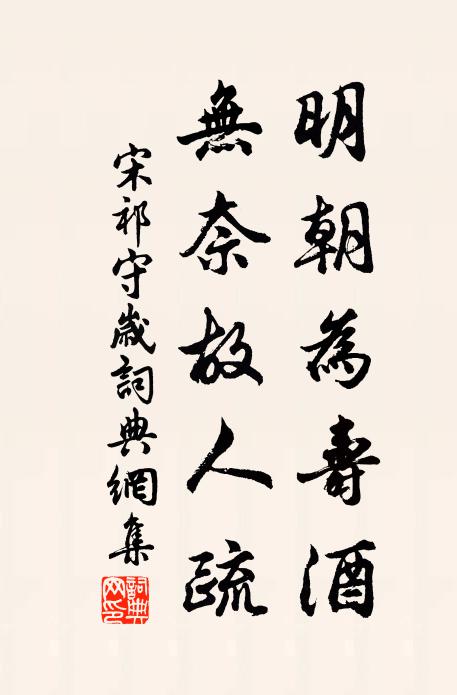 明朝為壽酒
無奈故人疏
宋祁守歲詞典網集
詞典網印